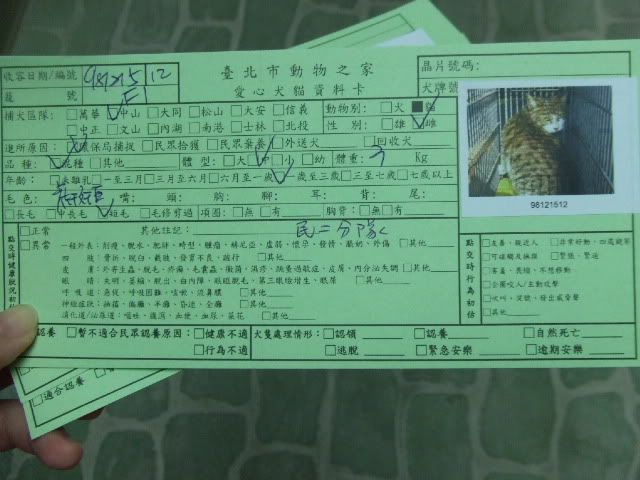 收容日期/編號 981215 12
臺北市動物之家
愛心犬貓資料卡
晶片號碼:
籠 號 F1
犬牌號
捕犬區隊: □萬華 □中山 □大同 □松山 □大安 □信義
□中正 □文山 □內湖 □南港 □士林 □北投
動物別: □犬 ■貓
性 別: □雄 □雌
進所原因: □環保局捕捉 □民眾拾獲 □民眾棄養 □外送犬 □回收犬
品種: □混種 □其他
體型: □大 □中 □小 □幼 體重: 3 Kg
年齡: □未離乳 □一至三月 □三至六月 □六月至一歲 □一歲至三歲 □三至七歲 □七歲以上
毛色: 嘴: 頭: 胸: 腳: 耳: 背: 尾:
□長毛 □中長毛 □短毛 □毛修剪過 項圈: □無 □有 胸背: □無 □有
98121512
點交時健康狀況初估
□正常 其他註記: 民=分隊
□異常
一般外表: 削瘦、脫水、肥胖、畸型、腫瘤、赫尼亞、虛弱、懷孕、發情、餵奶、外傷 □其他
四 肢: 骨折、脫臼、截肢、發育不良、跛行 □其他
皮 膚: 外寄生蟲、脫毛、疥癬、毛囊蟲、黴菌、濕疹、跳蚤過敏症、皮屑、內分泌失調 □其他
眼 睛: 失明、萎縮、脫出、白內障、眼瞼脫毛、第三眼瞼增生、眼屎 □其他
呼 吸 道: 急促、呼吸困難、咳嗽、流鼻膿 □其他
神經症狀: 抽搐、偏癱、半癱、昏迷、全癱 □其他
消化道/泌尿道: 嘔吐、腹瀉、血便、血尿、菜花 □其他
點交時行為初估
□友善、親近人 □非常好動、四處觀察
□可碰觸及擁抱 □緊張、緊迫
□害羞、畏縮、不想移動
□企圖咬人/主動攻擊
□吠叫、哭號、發出威脅聲
□其他
認養 □暫不適合民眾認養原因: □健康不適
□行為不適
犬隻處理情形: □認領 □認養 □自然死亡
□逃脫 □緊急安樂 □逾期安樂
□適合認養